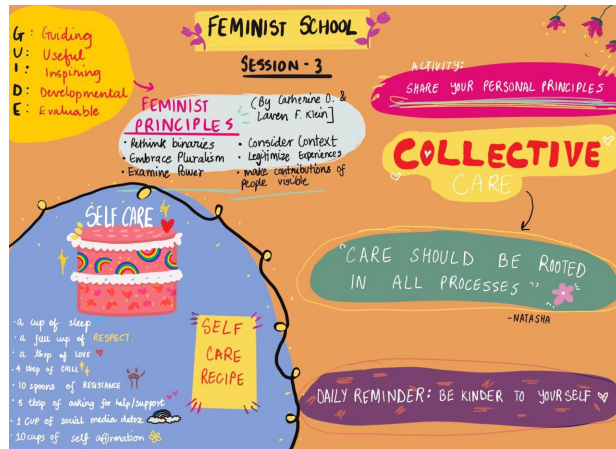 FEMINIST SCHOOL
SESSION - 3
G: Guiding
U: Useful
I: Inspiring
D: Developmental
E: Evaluable
FEMINIST
PRINCIPLES
(By Catherine D. &
Lauren F. Klein]
• Rethink binaries
• Embrace Pluralism
• Examine Power
• Consider Context
• Legitimize Experiences
• make contributions of
people visible
ACTIVITY:
SHARE YOUR PERSONAL PRINCIPLES
COLLECTIVE
CARE
"CARE SHOULD BE ROOTED
IN ALL PROCESSES"
-NATASHA
DAILY REMINDER: BE KINDER TO YOURSELF
SELF CARE
• a cup of sleep
• a full cup of RESPECT.
• a tbsp of LOVE
• 4 tbsp of CHILL
• 10 spoons of RESISTANCE
• 5 tbsp of asking for help/support
• 1 CUP of social media detox
• 10 cups of self affirmation
SELF
CARE
RECIPE